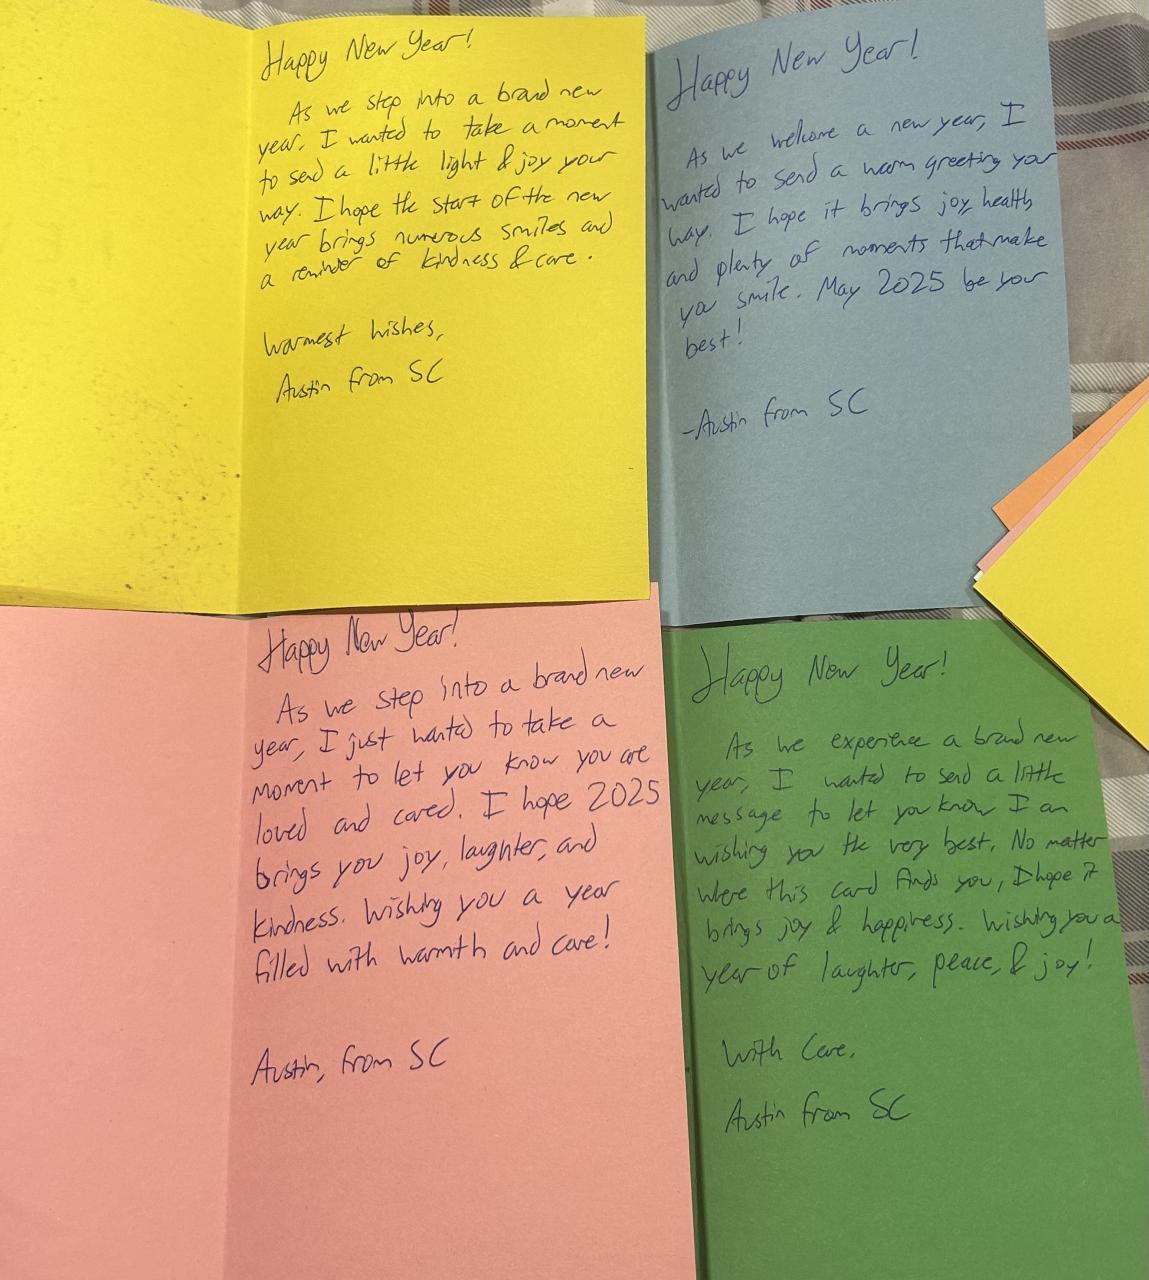 Happy New Year!
As we step into a brand new
year, I wanted to take a moment
to send a little light & joy your
way. I hope the start of the new
year brings numerous smiles and
a reminder of kindness & care.
Warmest wishes,
Austin from SC
Happy New Year!
As we welcome a new year, I
wanted to send a warm greeting your
way. I hope it brings joy, health,
and plenty of moments that make
you smile. May 2025 be your
best!
-Austin from SC
Happy New Year!
As we step into a brand new
year, I just wanted to take a
moment to let you know you are
loved and cared. I hope 2025
brings you joy, laughter, and
kindness. Wishing you a year
filled with warmth and care!
Austin, from SC
Happy New Year!
As we experience a brand new
year, I wanted to send a little
message to let you know I am
wishing you the very best. No matter
where this card finds you, I hope it
brings joy & happiness. Wishing you a
year of laughter, peace, & joy!
With Care,
Austin from SC